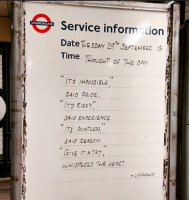 UNDERGROUND
Service information
Date TUESDAY 29TH SEPTEMBER 15
Time THOUGHT OF THE DAY
"IT'S IMPOSSIBLE,"
SAID PRIDE,
"IT'S RISKY"
SAID EXPERIENCE
"IT'S POINTLESS"
SAID REASON
"GIVE IT A TRY,"
WHISPERED THE HEART
- UNKNOWN